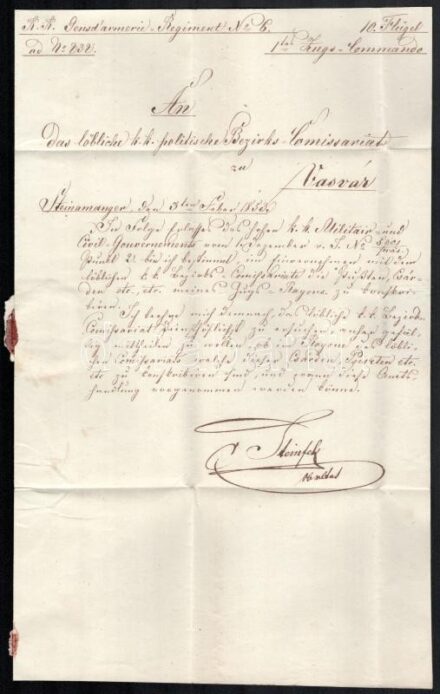 K. K. Gensd'armerie-Regiment No 6. 10. Flügel
ad No 838. 1ter Zugs-Commando
An
Das löbliche k. k. politische Bezirks-Comissariat
zu
Vasvár
Steinamanger den 5ten Feber 185
In Folge Erlasses des hohen k. k. Militair- und
Civil-Gouvernements vom Dezember v. J. No
Punkt 2. bin ich bestimmt, im Einvernehmen mit dem
löblichen k. k. Bezirks-Comissariate die Pusten, Csár-
den etc. etc. meines Zugs-Rayons zu konskri-
biren.
Ich beehre mich demnach das löbliche k. k. Bezirks-
Comissariat zu ersuchen, anher gefäl-
ligst mittheilen zu wollen, ob im Rayone des löbli-
chen Comissariats welche dieser Csárden, Puszten etc.
etc. zu konskribiren sind, und wann diese Amts-
handlung vorgenommen werden könne.
Steinfeld